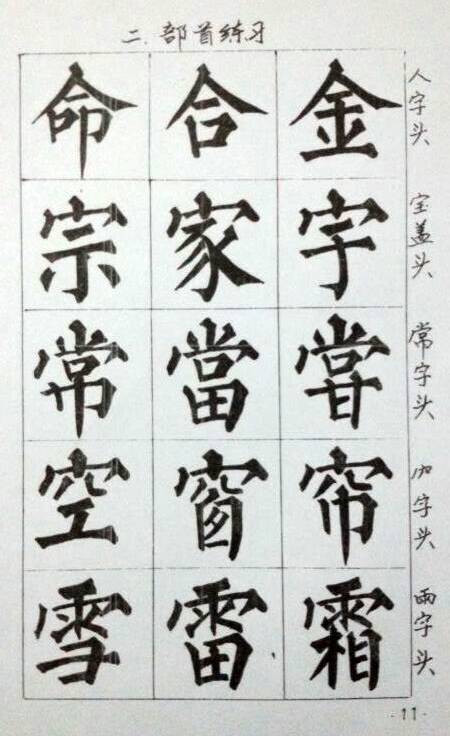 二.部首练习
人字头
金合命
宝盖头
字家宗
常字头
甞當常
字头
帘窗空
雨字头
霜雷雪
·11·